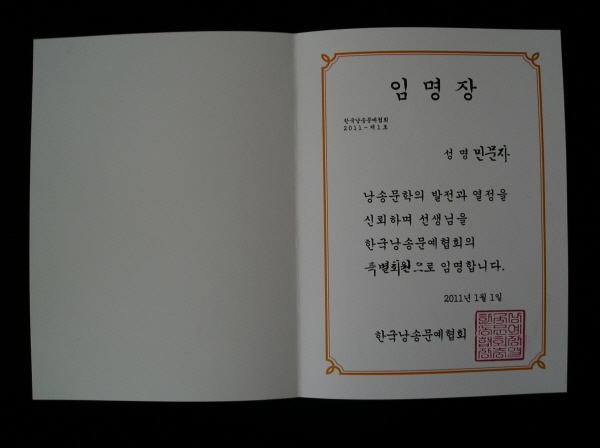 임명장
한국낭송문예협회
2011-제1호
성명 민문자
낭송문학의 발전과 열정을
신뢰하며 선생님을
한국낭송문예협회의
특별회원으로 임명합니다.
2011년 1월 1일
한국낭송문예협회